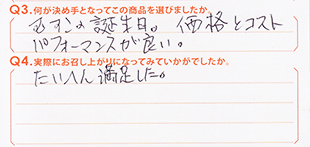 Q3.何が決め手となってこの商品を選びましたか。
むすこの誕生日。価格とコスト
パフォーマンスが良い。
Q4.実際にお召し上がりになってみていかがでしたか。
たいへん満足した。